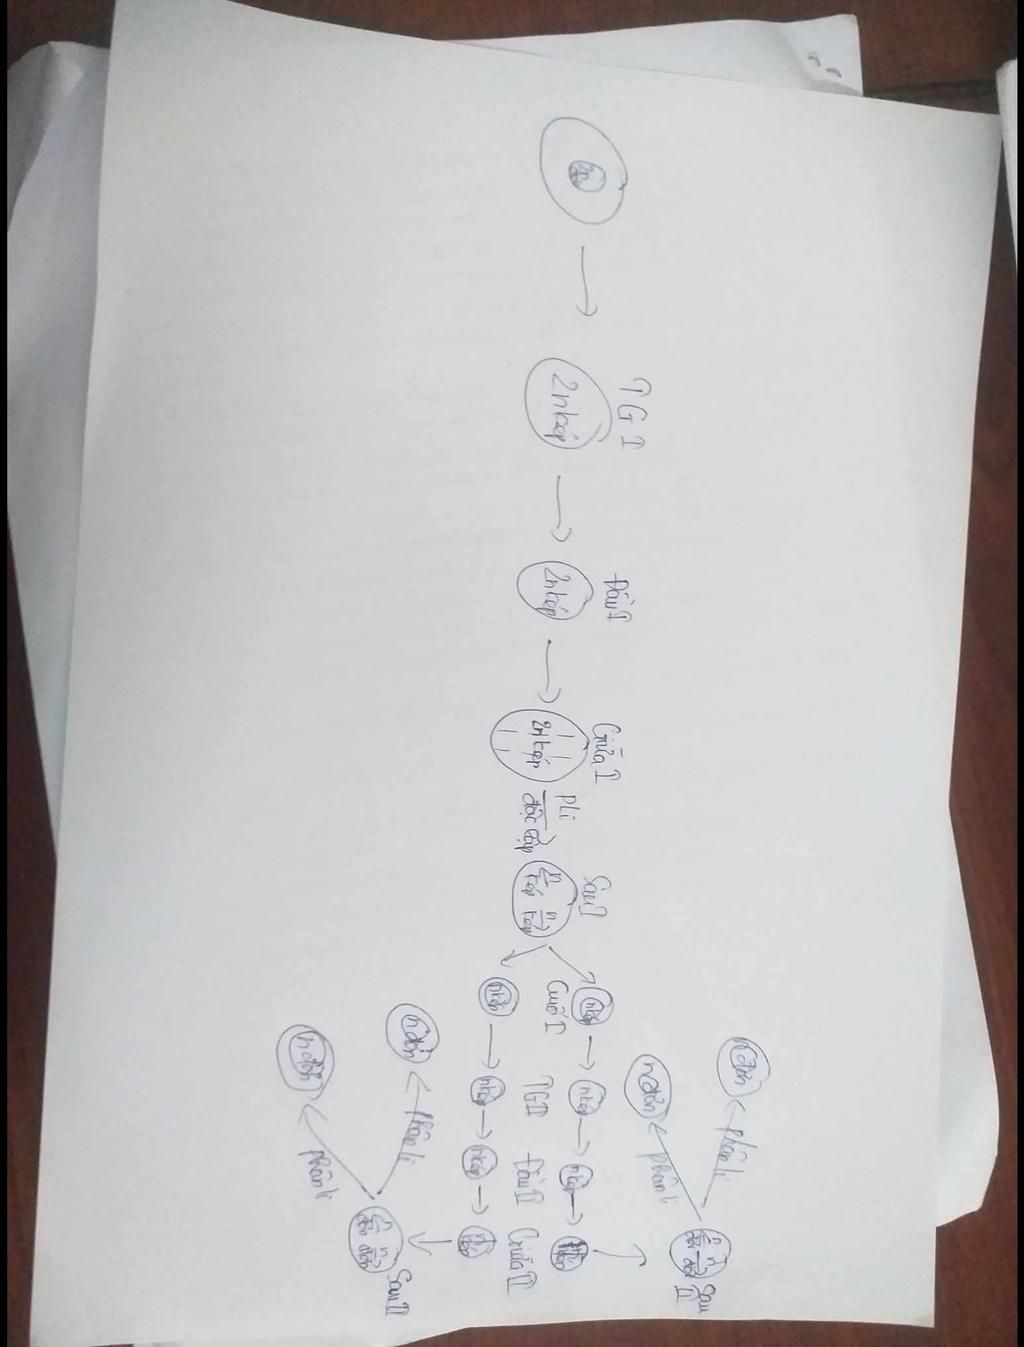 2n
TGI
2n kép
Đầu I
2n kép
Giữa I
2n kép
Pli
độc lập
Sau I
n kép
n kép
Cuối I
n kép
n kép
TGII
n kép
n kép
Đầu II
n kép
n kép
Giữa II
n kép
n kép
Sau II
n đơn
n đơn
phân li
phân li
n đơn
n đơn
Sau II
n đơn
n đơn
phân li
phân li
n đơn
n đơn